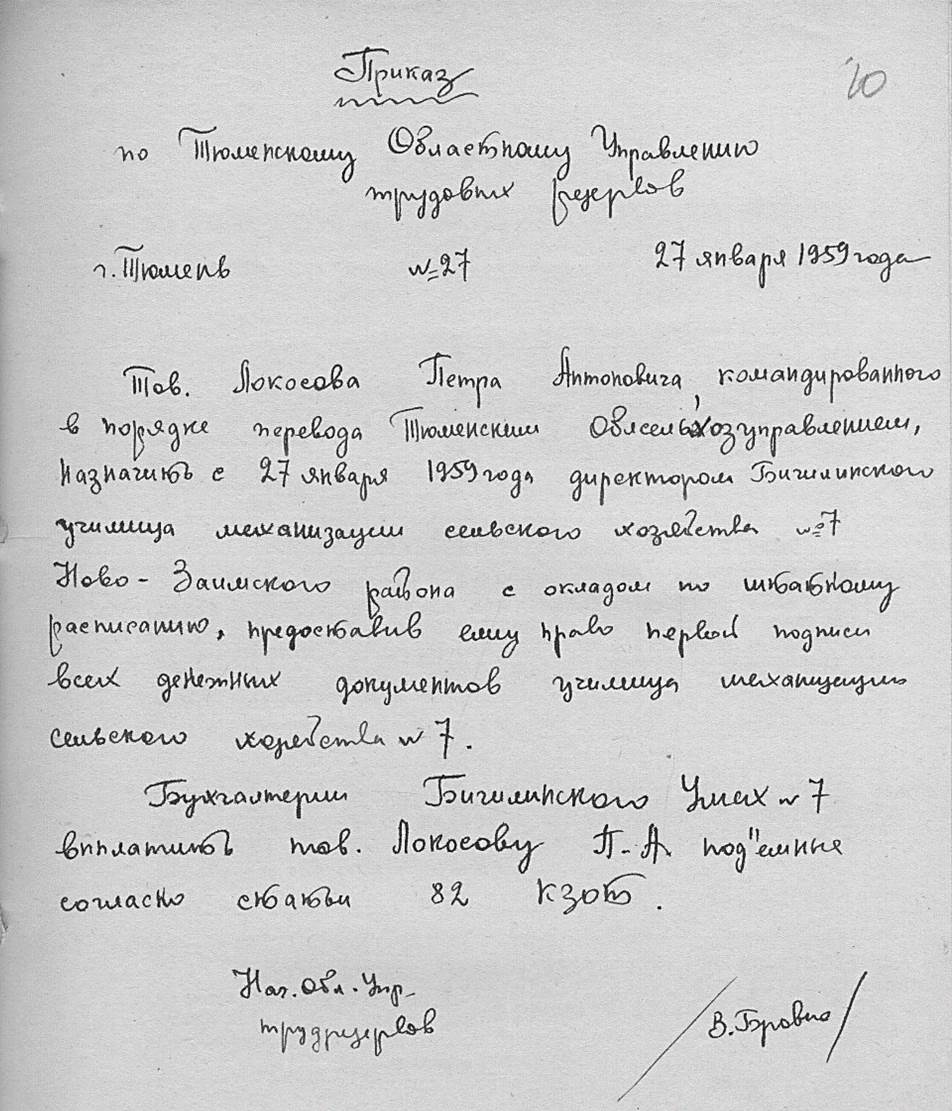 Приказ
10
по Тюменскому Областному Управлению
трудовых резервов
г. Тюмень №27 27 января 1959 года
Тов. Локосова Петра Антоновича, командированного
в порядке перевода Тюменским Облсельхозуправлением,
назначить с 27 января 1959 года директором Бигилинского
училища механизации сельского хозяйства №7
Ново-Заимского района с окладом по штатному
расписанию, предоставив ему право первой подписи
всех денежных документов училища механизации
сельского хозяйства № 7.
Бухгалтерии Бигилинского Умсх № 7
выплатить тов. Локосову П.А. под"емные
согласно статьи 82 КЗОТ.
Нач. Обл. Упр.
трудрезервов
/ В. Бровко /